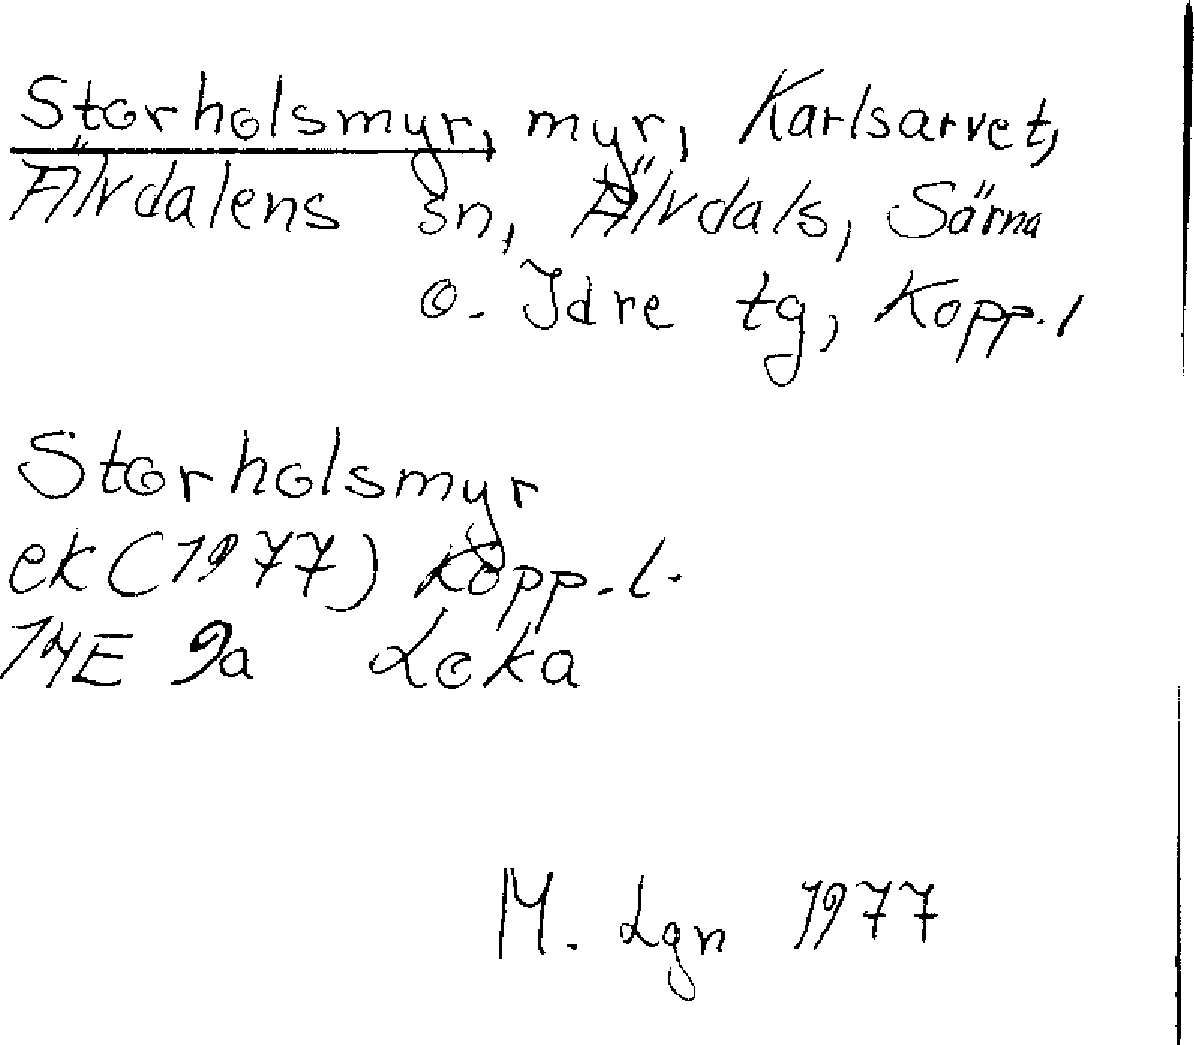 Storholsmyr, myr, Karlsarvet,
Älvdalens sn, Älvdals, Särna
o. Idre tg, Kopp. l
Storholsmyr
ek (1977) Kopp. l.
14E 9a Loka
M. Lgn 1977